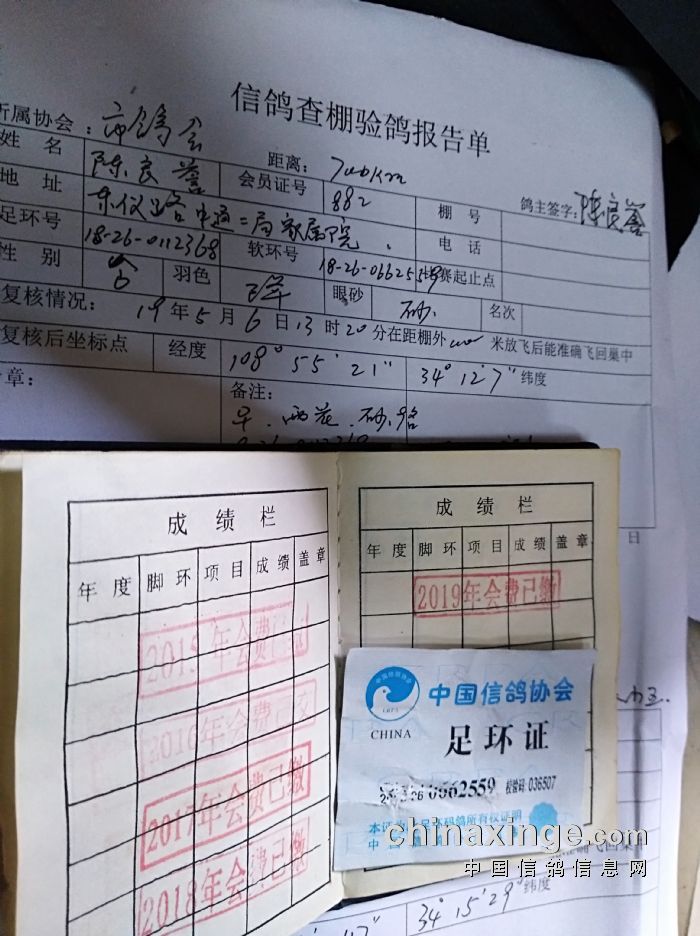 信鸽查棚验鸽报告单
所属协会：市鸽会
距离：700Km
鸽主签字：陈良
姓 名 陈良 会员证号 882 棚 号
地 址 家属院 电 话
足环号 18-26-0112368 软环号 18-26-0662559 比赛起止点
性 别 羽色 眼砂 砂 名次
复核情况：19年5月6日13时20分在距棚外 米放飞后能准确飞回巢中
复核后坐标点 经度 108°55'21" 34°12'7" 纬度
章：
备注：
日
成 绩 栏
年 度 脚 环 项 目 成 绩 盖 章
2015年会费已
2016年会费已交
2017年会费已缴
2018年会费已缴
成 绩 栏
年 度 脚 环 项 目 成 绩 盖 章
2019年会费已缴
中国信鸽协会
CHINA
足 环 证
0662559 校验码:036507
chinaxinge.com
中国信鸽信息网
34°15'29" 纬度